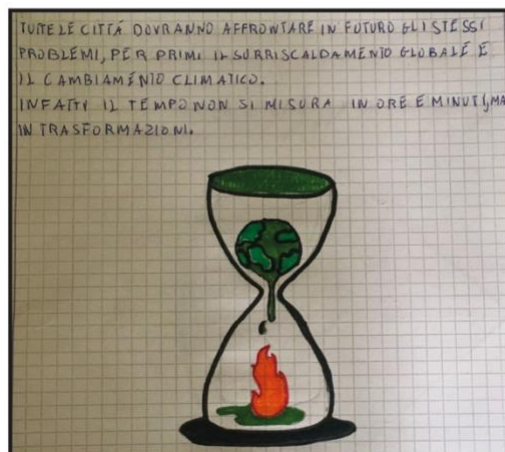 TUTTE LE CITTÁ DOVRANNO AFFRONTARE IN FUTURO GLI STESSI
PROBLEMI, PER PRIMI IL SURRISCALDAMENTO GLOBALE E
IL CAMBIAMENTO CLIMATICO.
INFATTI IL TEMPO NON SI MISURA IN ORE E MINUTI, MA
IN TRASFORMAZIONI.